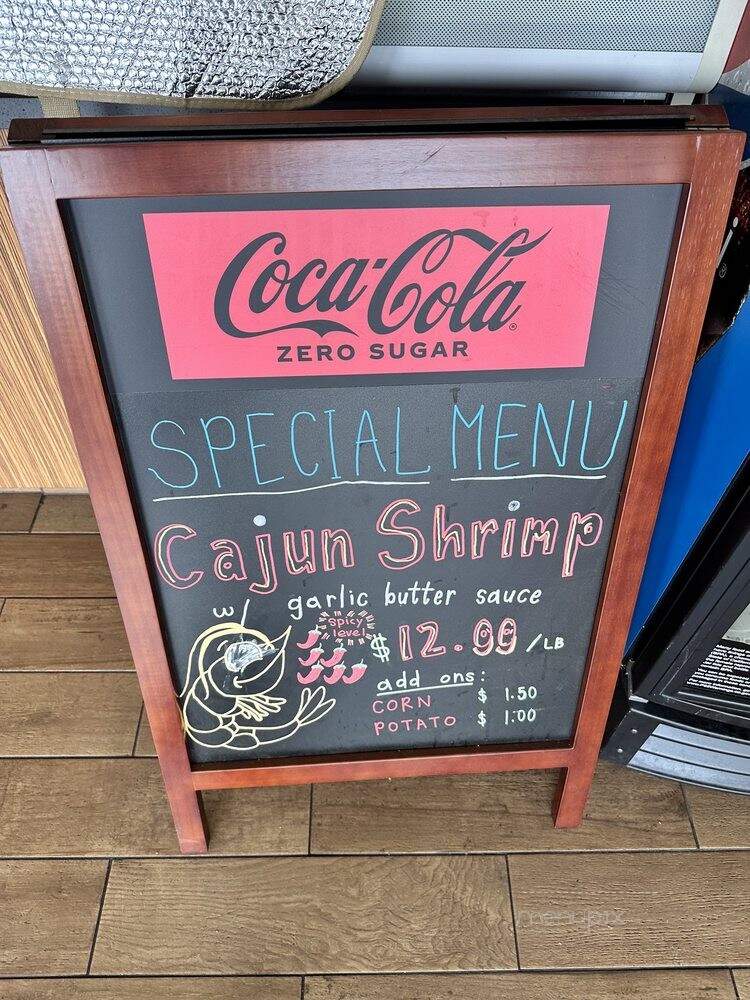 Coca-Cola
ZERO SUGAR
SPECIAL MENU
Cajun Shrimp
garlic butter sauce
spicy level
$ 12.99 /LB
add ons:
CORN $ 1.50
POTATO $ 1.00
menupix